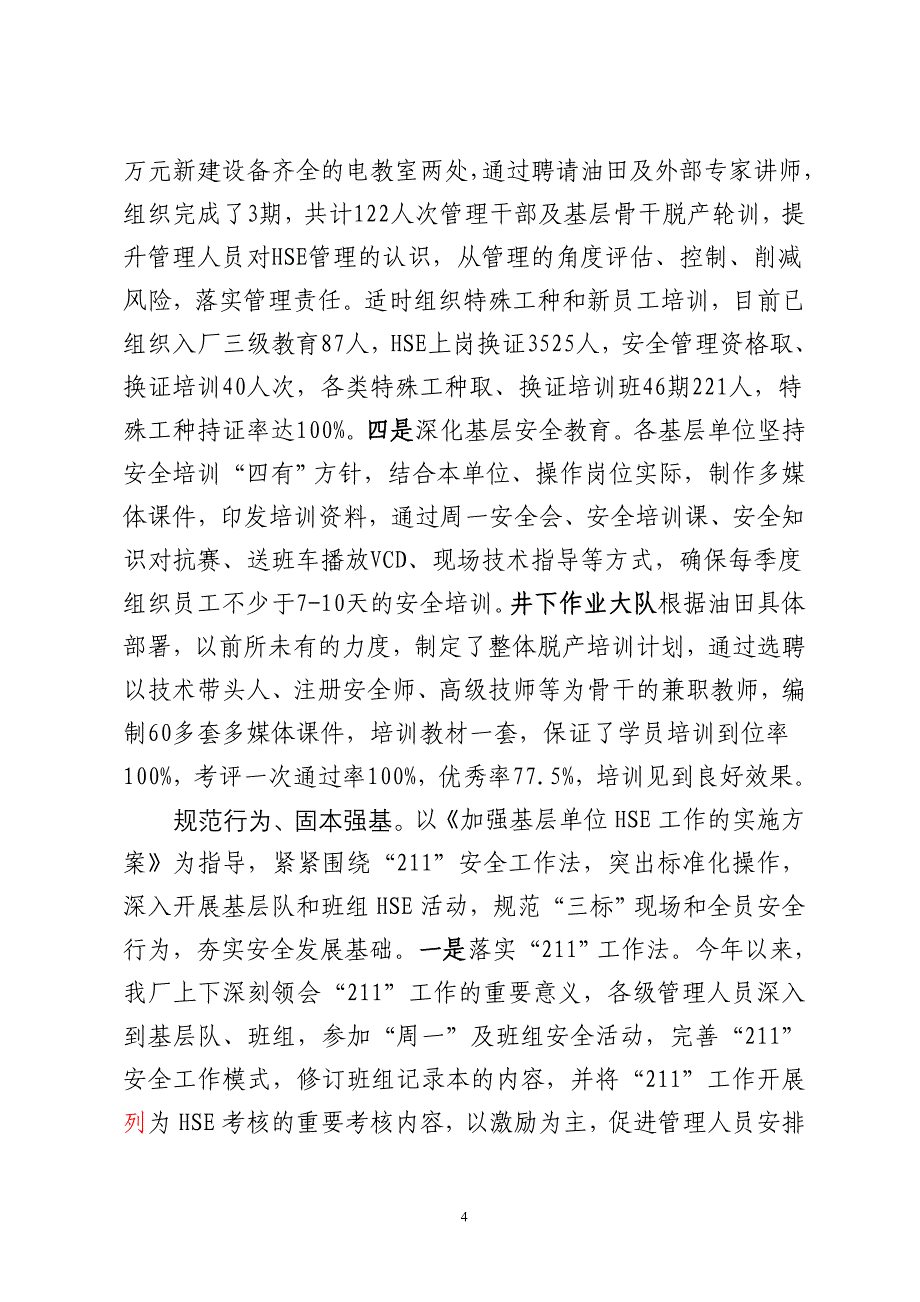 万元新建设备齐全的电教室两处，通过聘请油田及外部专家讲师，
组织完成了3期，共计122人次管理干部及基层骨干脱产轮训，提
升管理人员对HSE管理的认识，从管理的角度评估、控制、削减
风险，落实管理责任。适时组织特殊工种和新员工培训，目前已
组织入厂三级教育87人，HSE上岗换证3525人，安全管理资格取、
换证培训40人次，各类特殊工种取、换证培训班46期221人，特
殊工种持证率达100%。四是深化基层安全教育。各基层单位坚持
安全培训“四有”方针，结合本单位、操作岗位实际，制作多媒
体课件，印发培训资料，通过周一安全会、安全培训课、安全知
识对抗赛、送班车播放VCD、现场技术指导等方式，确保每季度
组织员工不少于7-10天的安全培训。井下作业大队根据油田具体
部署，以前所未有的力度，制定了整体脱产培训计划，通过选聘
以技术带头人、注册安全师、高级技师等为骨干的兼职教师，编
制60多套多媒体课件，培训教材一套，保证了学员培训到位率
100%，考评一次通过率100%，优秀率77.5%，培训见到良好效果。
规范行为、固本强基。以《加强基层单位 HSE 工作的实施方
案》为指导，紧紧围绕“211”安全工作法，突出标准化操作，
深入开展基层队和班组 HSE 活动，规范“三标”现场和全员安全
行为，夯实安全发展基础。一是落实“211”工作法。今年以来，
我厂上下深刻领会“211”工作的重要意义，各级管理人员深入
到基层队、班组，参加“周一”及班组安全活动，完善“211”
安全工作模式，修订班组记录本的内容，并将“211”工作开展
列为 HSE 考核的重要考核内容，以激励为主，促进管理人员安排
4